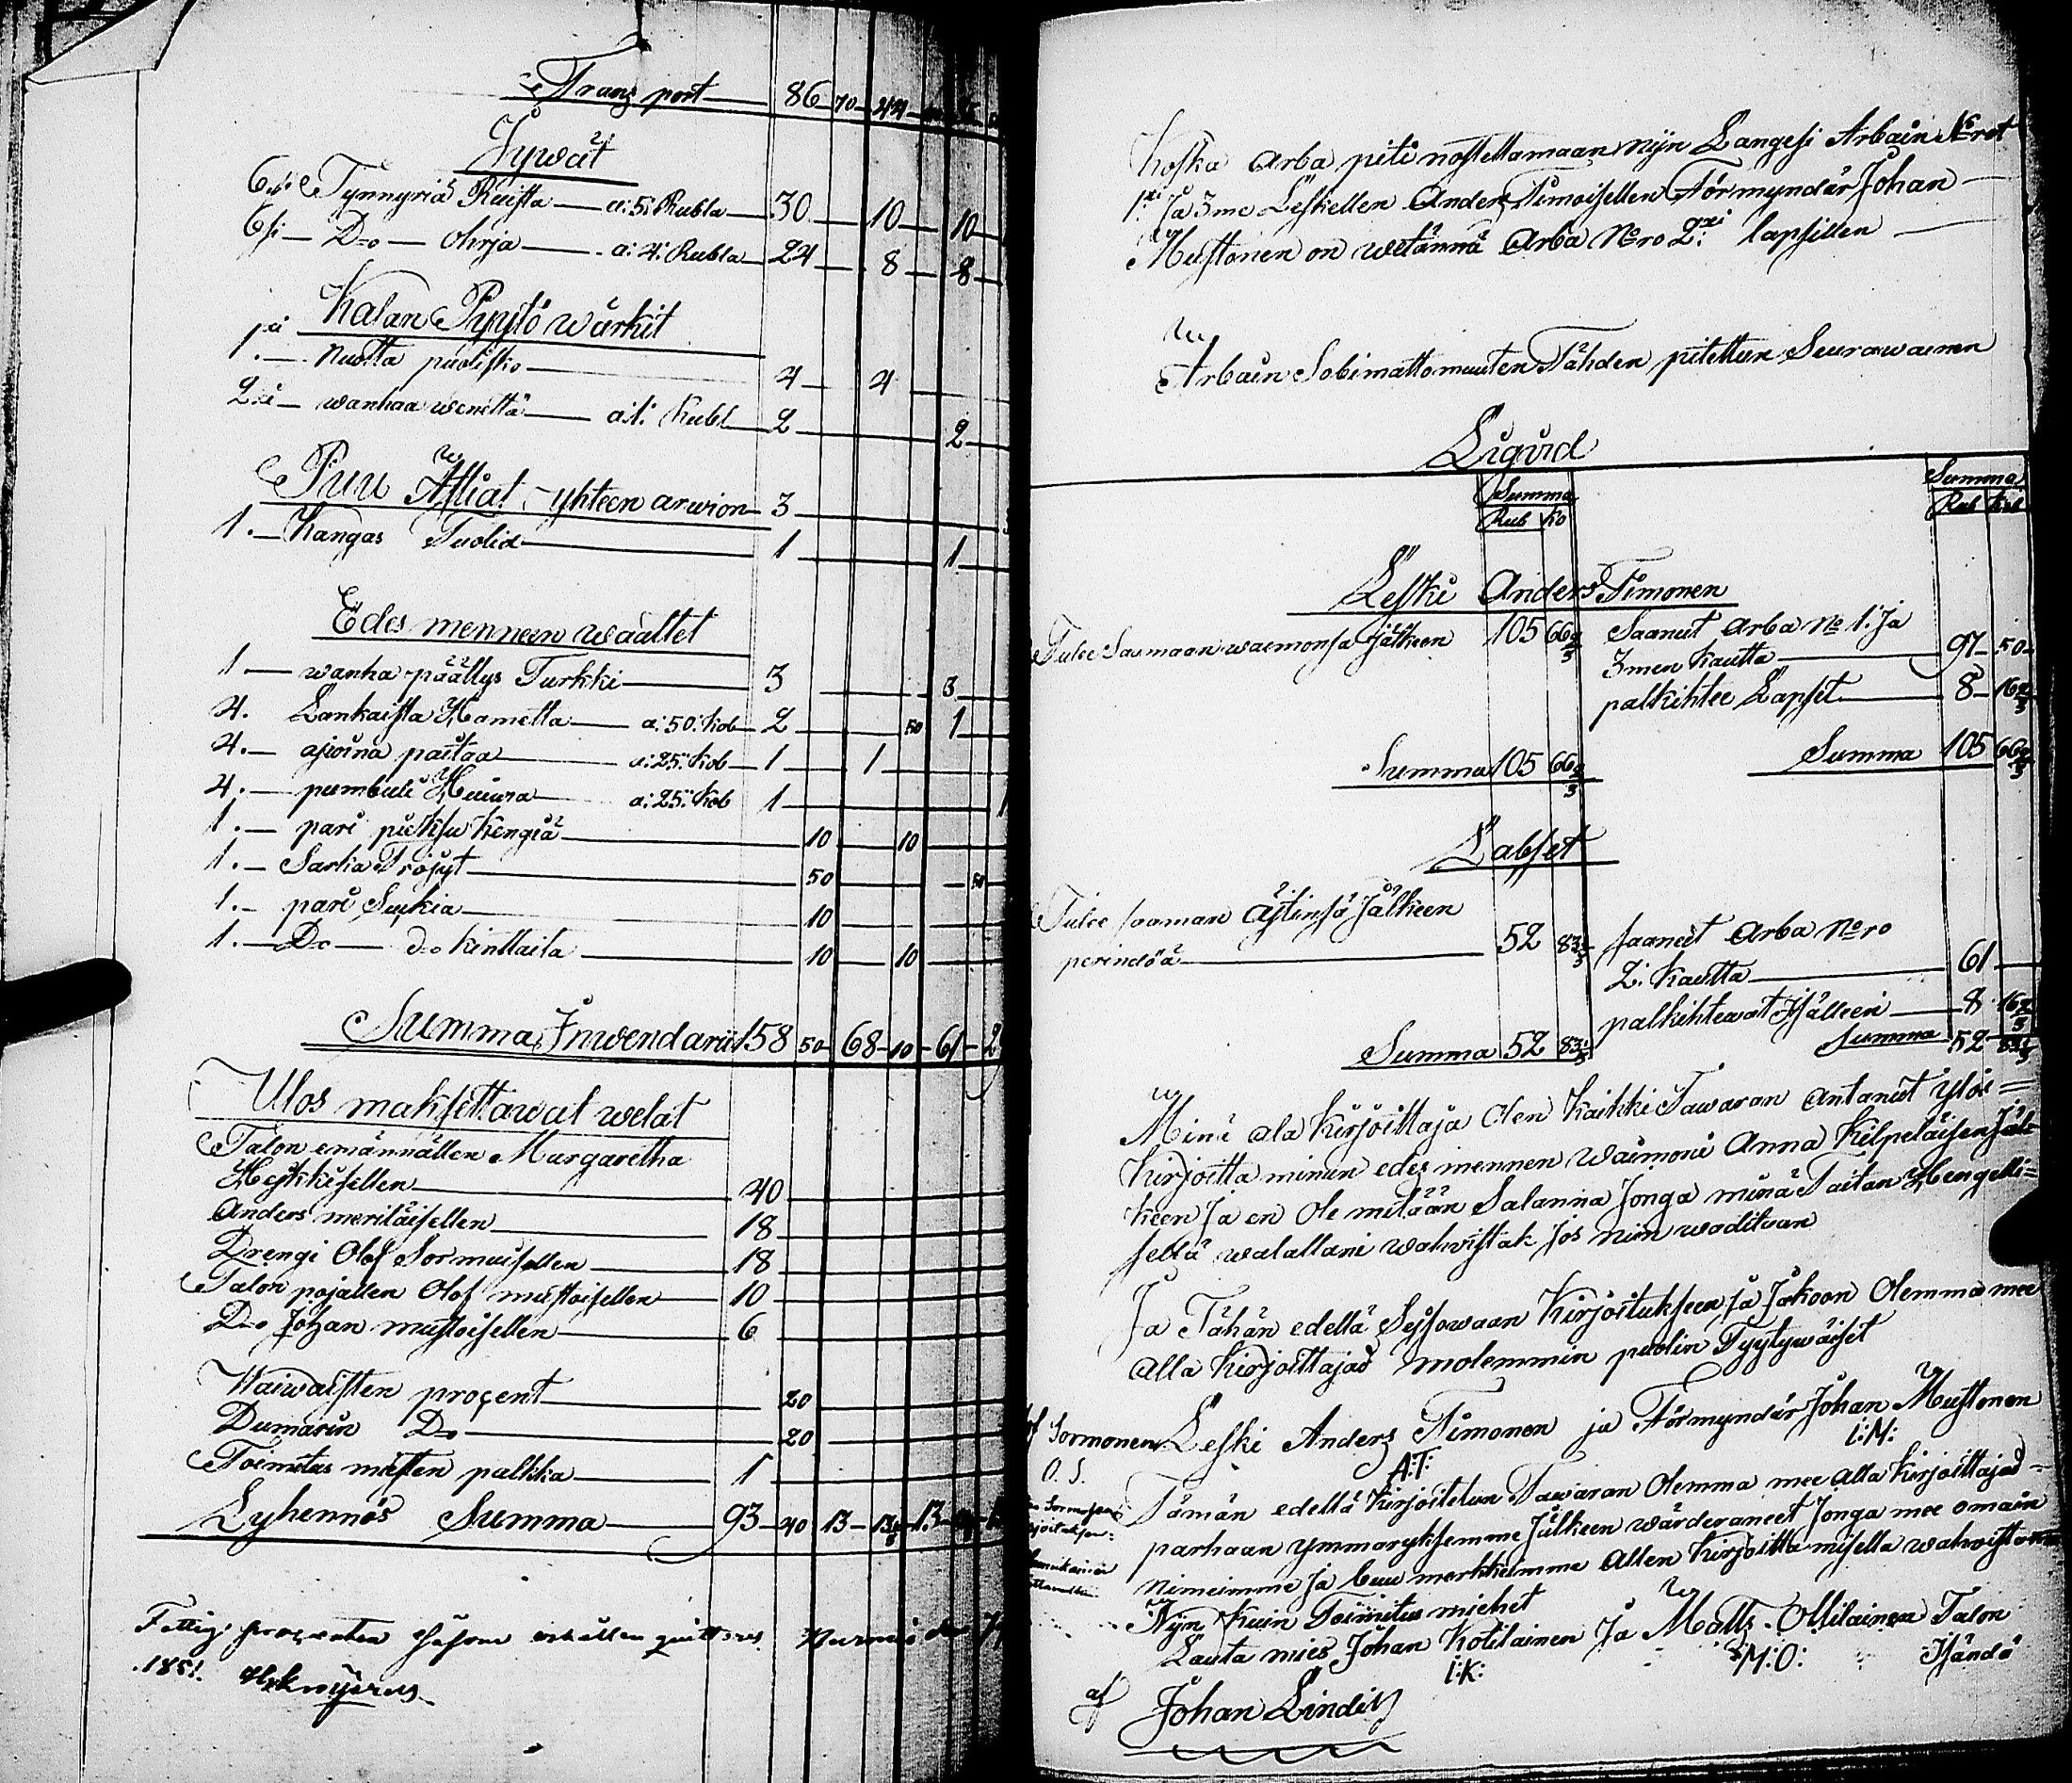 Transport 86 70 44
Jywät
6si Tynnyriä Ruista a: 5: Rubla 30 10 10
6si D:o ohrja a: 4: Rubla 24 8 8
Kalan Pyytö wärkit
1. Nuotta puolisko 4 4
2:si wanhaa wenettä a: 1: Rubl 2 2
Puu Astiat yhteen arwion 3
1. Kangas Tuolia 1 1
Edes menneen waattet
1 wanha päällys Turkki 3 3
4. Lankaista Hametta a: 50: Kob 2 50 1
4. ajwina paitaa a: 25: Kob 1 1
4. pumbuli Huiwia a: 25: Kob 1 1
1. pari puksu Kengiä 10 10
1. Sarka Tröjyt 50 50
1. pari Sukia 10
1. D:o d:o kinttaita 10 10
Summa Inwendarii 158 50 68 10 61 2
Ulos maksettawat welat
Talon emännällen Margaretha
Heikkisellen 40
Anders meriläisellen 18
Drengi Olof Sormuisellen 18
Talon pojallen Olof mustoisellen 10
D:o Johan mustoisellen 6
Waiwaisten procent 20
Dumarin D:o 20
Toimitus miesten palkka 1
Lyhennös Summa 93 40 13 13 13
Fattig procenten
1851.
Koska Arba piti nostettamaan nijn Langesi Arbain N:rot
1:xi Ja 3me Leskellen Anders Timoisellen Förmyndär Johan
Mustonen on wetännä Arba N:ro 2:xi lapsillen
Arbain Sobimattomuuten Tähden pitettun Seurawainen
Liqvid
Summa Summa
Rub Ko Rub Kob
Leski Anders Timonen
Tulee Saamaan waemonsa jälkeen 105 66 2/3 Saanut Arba No 1: Ja
3men kautta 97 50
palkihtee Lapset 8 16 2/3
Summa 105 66 2/3 Summa 105 66 2/3
Labset
Tulee saaman äitinsä Jälkeen
perindöä 52 83 1/3 saanut Arba N:ro
2: kautta 61
palkihtewat Isälleen 8 16 2/3
Summa 52 83 1/3 Summa 52 83 1/3
Minä ala Kirjoittaja Olen Kaikki Tawaran Antanut ylös=
Kirjoitta minun edes mennen Waimoni Anna Kilpeläisen Jäl=
keen Ja en Ole mitään Salanna Jonga minä Taitan Hengelli=
sellä walallani wahvistak jos niin waditaan
Ja Tähän edellä Seisowaan Kirjoitukseen ja Jakoon Olemma mee
alla Kirjoittajad molemmin puolin Tyytywäiset
Sormonen Leski Anders Timonen ja Förmyndär Johan Mustonen
O. S. A:T: I:M:
Tämän edellä Kirjoitetun Tawaran Olemma mee alla kirjoittajad
parhaan ymmaryksemme Jälkeen wärderaneet Jonga mee omain
nimeimme Ja buu merkkeimme Allen Kirjoittamisella wahvistama
Nijn Kuin Toimitus miehet
Lauta mies Johan Kotilainen Ja Matts Ollilainen Talon
I:K: M:O: Isändä
af Johan Lindit